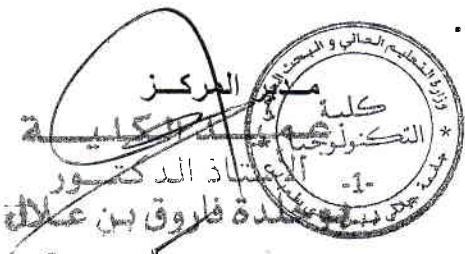 مدير المركز
عميد الكلية
الأستاذ الدكتور
فاروق بن علال
وزارة التعليم العالي و البحث العلمي
كلية
التكنولوجيا
-1-